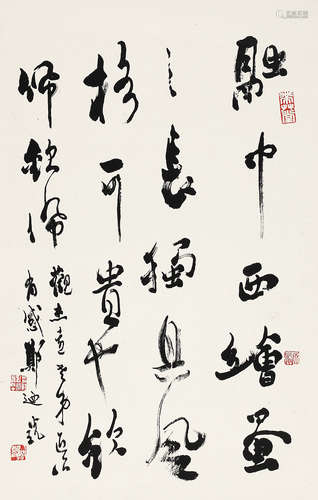 融中西繪畫
之長獨具風
格可貴也欽
欽佩
觀弟近作
有感鄭迺珖